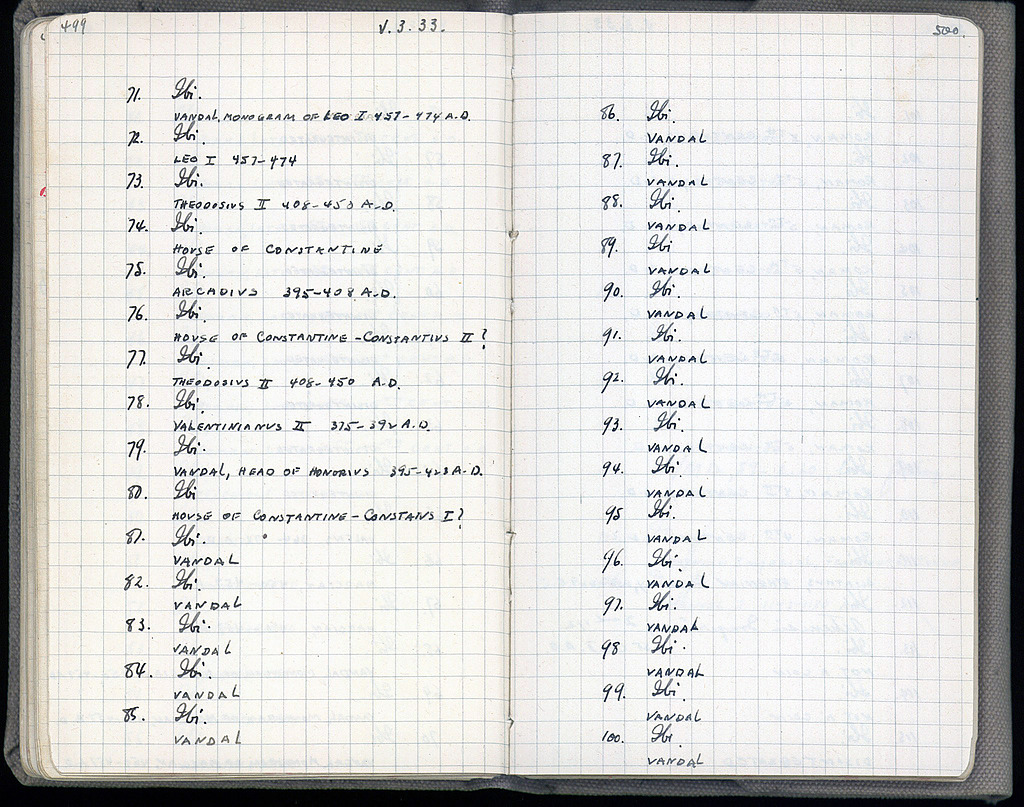 499
V.3.33.
71. Ibi.
VANDAL, MONOGRAM OF LEO I 457-474 A.D.
72. Ibi.
LEO I 457-474
73. Ibi.
THEODOSIUS II 408-450 A.D.
74. Ibi.
HOUSE OF CONSTANTINE
75. Ibi.
ARCADIUS 395-408 A.D.
76. Ibi.
HOUSE OF CONSTANTINE - CONSTANTIUS II?
77. Ibi.
THEODOSIUS II 408-450 A.D.
78. Ibi.
VALENTINIANUS II 375-392 A.D.
79. Ibi.
VANDAL, HEAD OF HONORIUS 395-423 A.D.
80. Ibi
HOUSE OF CONSTANTINE - CONSTANS I?
81. Ibi.
VANDAL
82. Ibi.
VANDAL
83. Ibi.
VANDAL
84. Ibi.
VANDAL
85. Ibi.
VANDAL
500.
86. Ibi.
VANDAL
87. Ibi.
VANDAL
88. Ibi.
VANDAL
89. Ibi
VANDAL
90. Ibi.
VANDAL
91. Ibi.
VANDAL
92. Ibi.
VANDAL
93. Ibi.
VANDAL
94. Ibi.
VANDAL
95 Ibi.
VANDAL
96. Ibi.
VANDAL
97. Ibi.
VANDAL
98 Ibi.
VANDAL
99. Ibi.
VANDAL
100. Ibi.
VANDAL